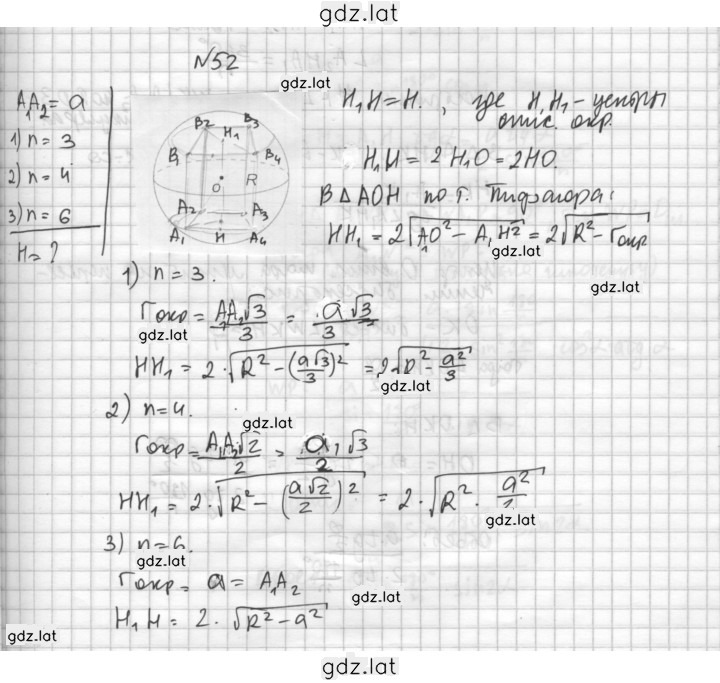 gdz.lat
N52
gdz.lat
A₁A₂ = a
1) n = 3
2) n = 4
3) n = 6
H = ?
B₂ B₃
H₁
B₁ B₄
O R
A₂ A₃
A₁ H A₄
H₁H = H. , где H, H₁ - центры
опис. окр.
H₁H = 2H₁O = 2HO.
В △AOH по т. Пифагора:
HH₁ = 2√A₁O² - A₁H² = 2√R² - rокр
gdz.lat
gdz.lat
1) n = 3.
rокр = A₁A₂√3/3 = a√3/3
gdz.lat
HH₁ = 2·√R² - (a√3/3)² = 2√R² - a²/3
gdz.lat
2) n = 4.
gdz.lat
rокр = A₁A₂√2/2 = a√3/2
HH₁ = 2·√R² - (a√2/2)² = 2·√R² · a²/
gdz.lat
3) n = 6.
gdz.lat
rокр = a = A₁A₂
gdz.lat
H₁H = 2·√R² - a²
gdz.lat
gdz.lat